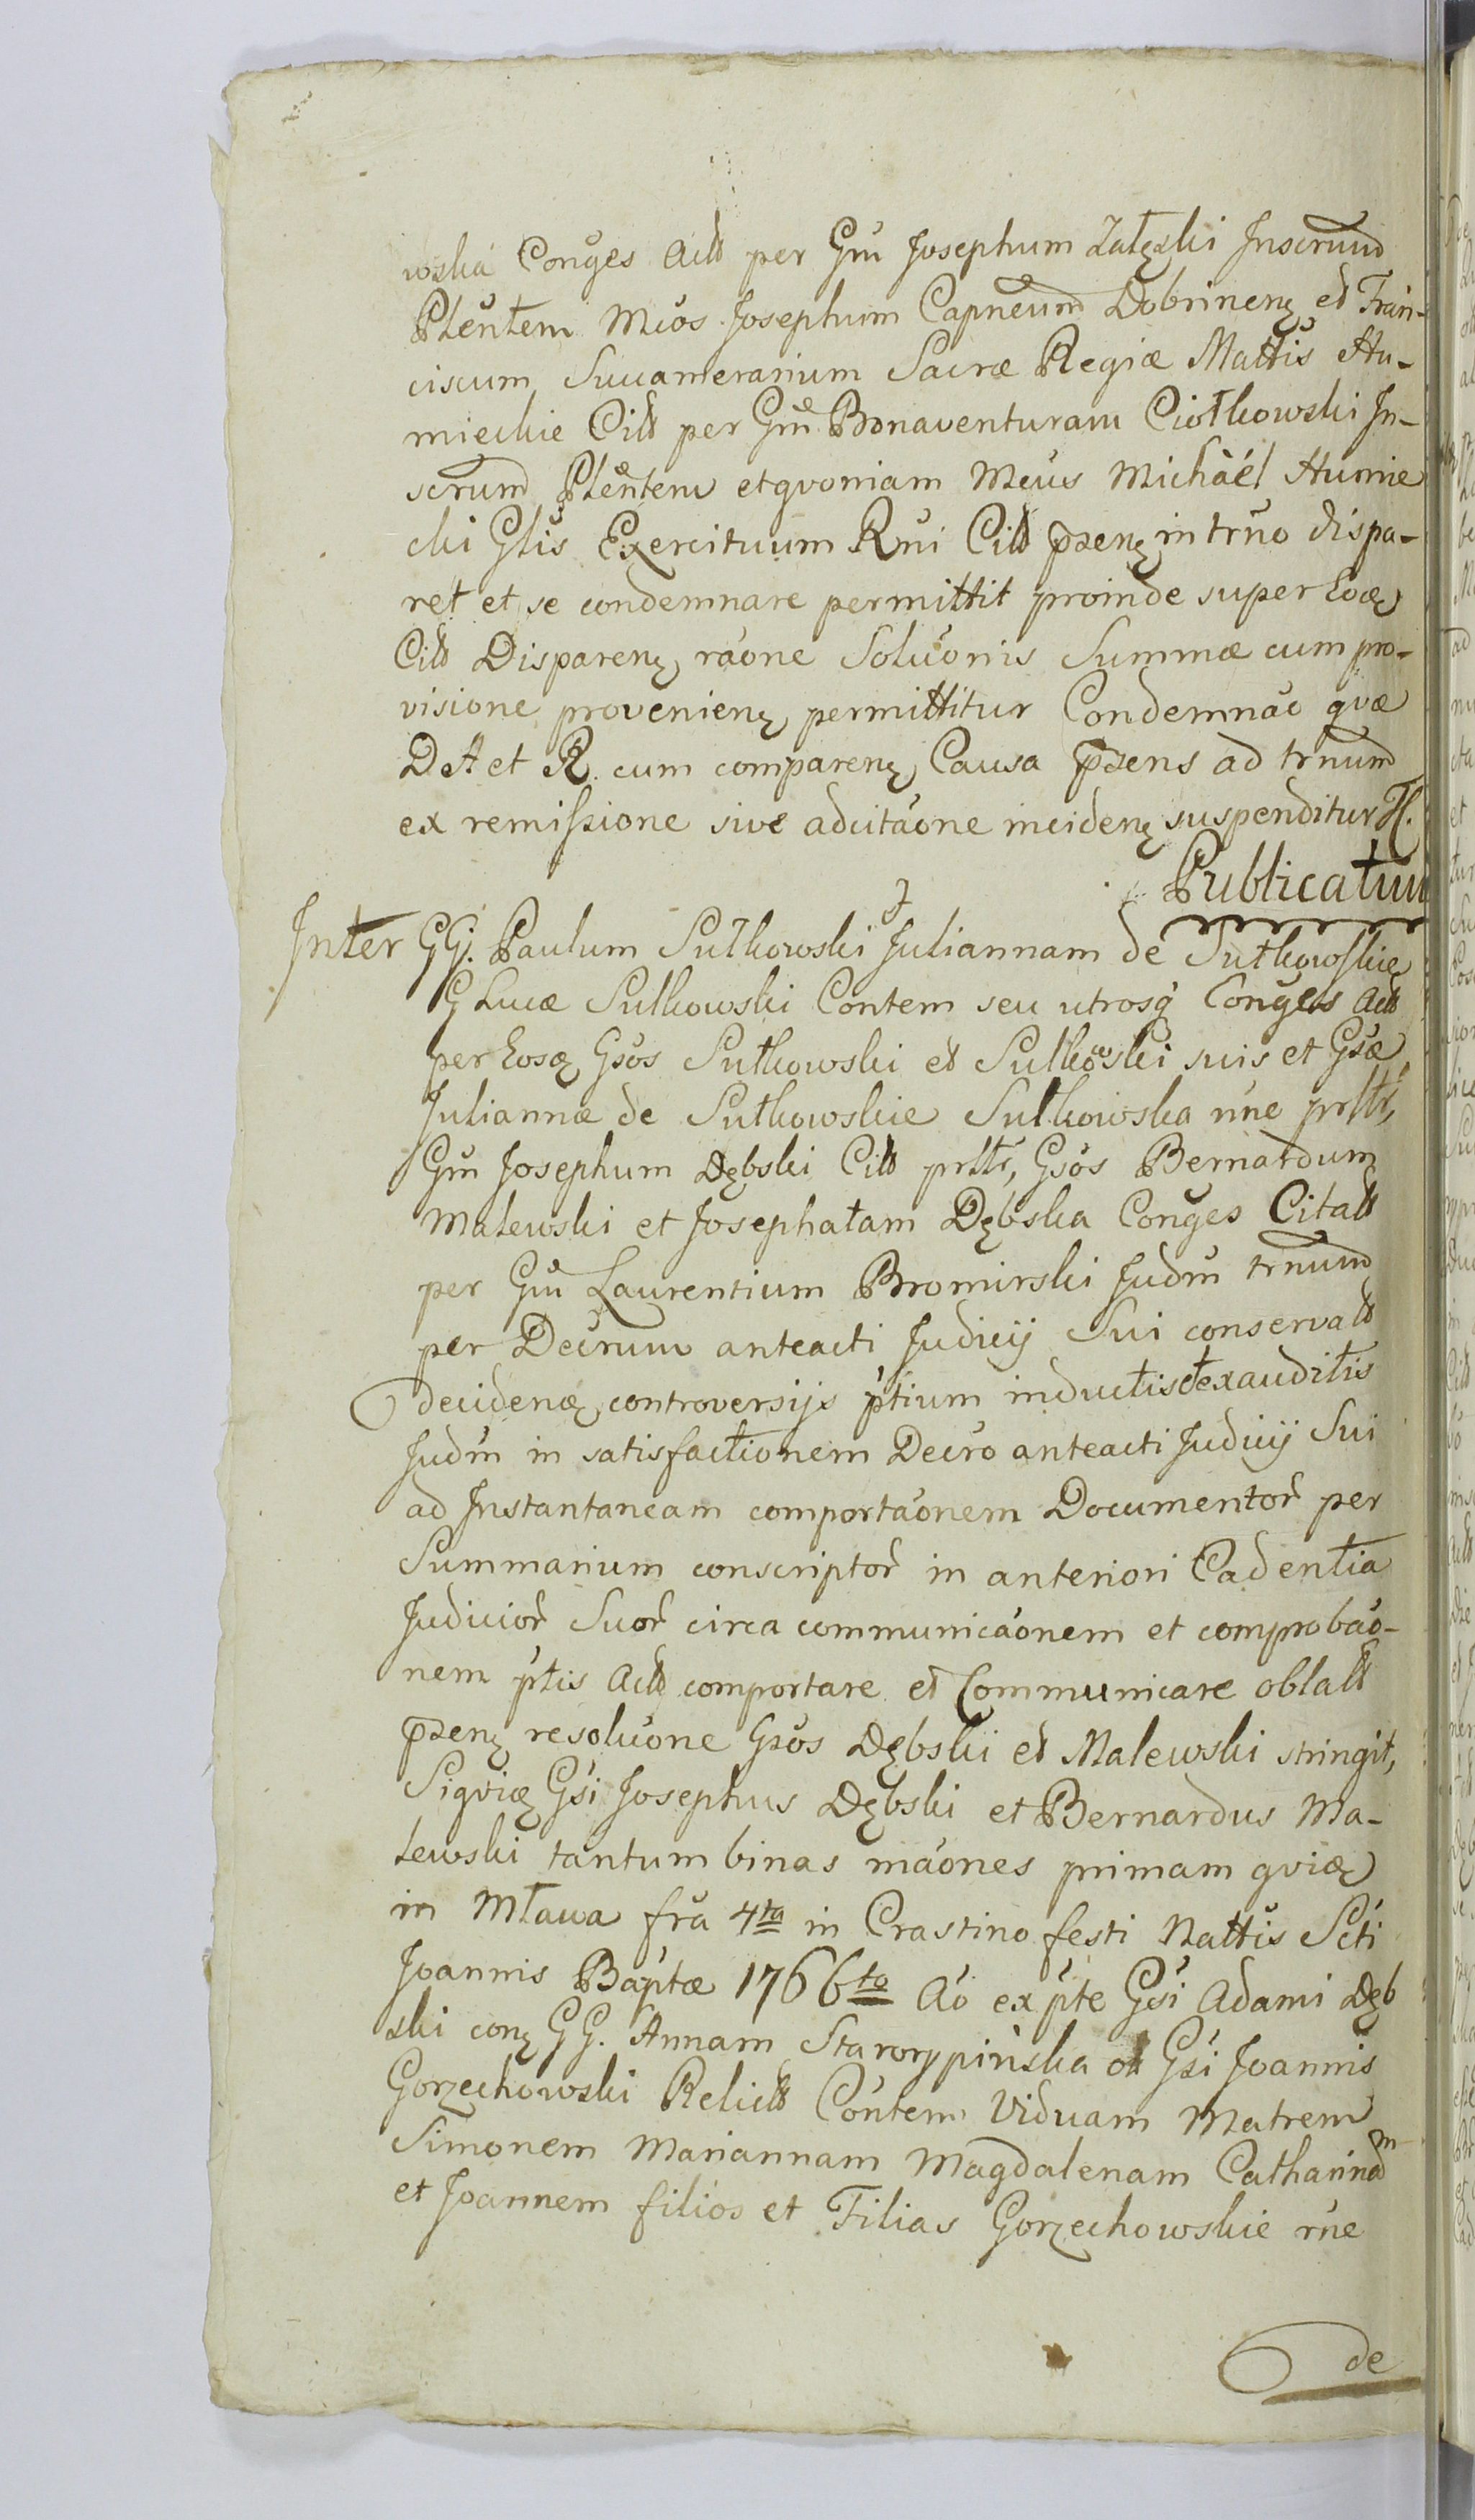 wska Conges Actt per Gm̃ Josephum Załęski Inscrnum
Plentem Mcos Josephum Capneum Dobrinenę et Fran-
ciscum Succamerarium Sacræ Regiæ Mattis Hu-
mieckie Citt per Gm̃ Bonaventuram Ciołkowski In-
scrnum Plentem et qvoniam Mcus Michäel Humie
cki Glis Exercituum Rni Citt p̄senę in trno dispa-
ret et se condemnare permittit proinde super Eoę
Citt Disparenę raone Soluonis Summæ cum pro-
visione provenienę permittitur Condemnao qvæ
DA et R. cum comparenę Causa p̄sens ad trnum
ex remissione sive adcitaone incidenę suspenditur H.
Publicatum
Inter GG. Paulum Sułkowski J Juliannam de Sułkowskię
G Lucæ Sułkowski Contem seu utrosq̃ Conges Actt
per Eosę Gsos Sułkowski et Sułkowski suis et Gsæ
Juliannæ de Sułkowskie Sułkowska nne prltr,
Gm̃ Josephum Dębski Citt prltr, Gsos Bernardum
Malewski et Josephatam Dębska Conges Citatt
per Gm̃ Laurentium Bromirski Judm̃ trnum
per Decrum anteacti Judicij Sui conservatt
decidenę controversijs ptium inductis et exauditis
Judm̃ in satisfactionem Decro anteacti Judicij Sui
ad Instantaneam comportaonem Documentor̃ per
Summarium conscriptor̃ in anteriori Cadentia
Judicior̃ Suor̃ circa communicaonem et comprobao-
nem ptis Actt comportare et Communicare oblatt
p̄senę resoluone Gsos Dębski et Malewski stringit,
Siqvię Gsi Josephus Dębski et Bernardus Ma-
lewski tantum binas maones primam qvię
in Mława fra 4ta in Crastino festi Nattis Scti
Joannis Baptæ 1766to Ao ex pte Gsi Adami Dęb
ski conę GG. Annam Starorypińska ol Gsi Joannis
Gorzechowski Relictt Contem Viduam Matrem
Simonem Mariannam Magdalenam Catharinam
et Joannem filios et Filias Gorzechowskie rne
de